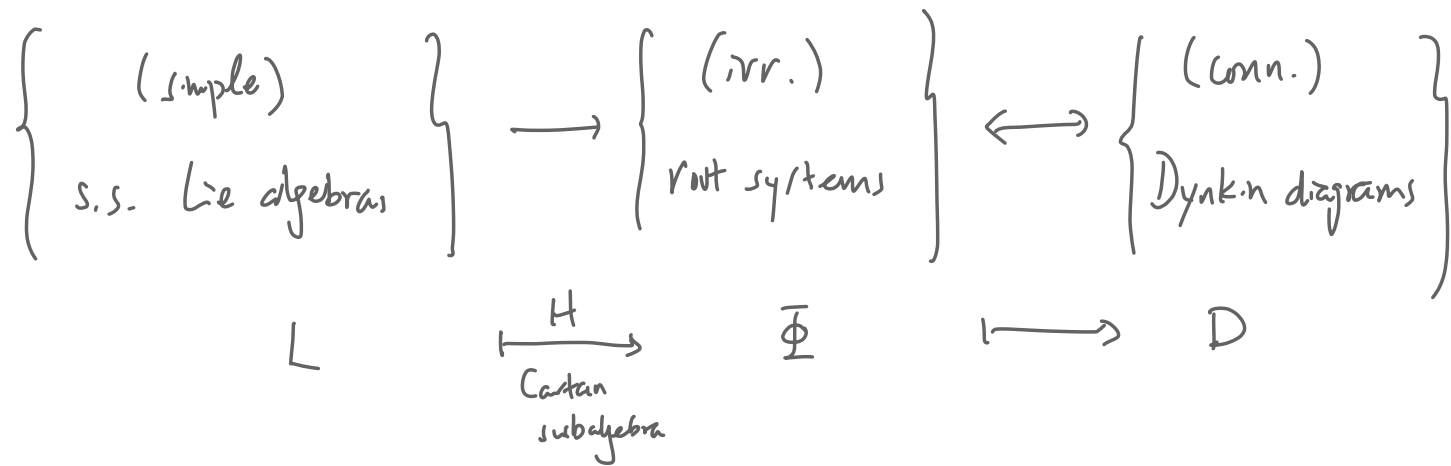 (simple) (irr.) (conn.)
s.s. Lie algebras root systems Dynkin diagrams
L H Φ D
Cartan
subalgebra